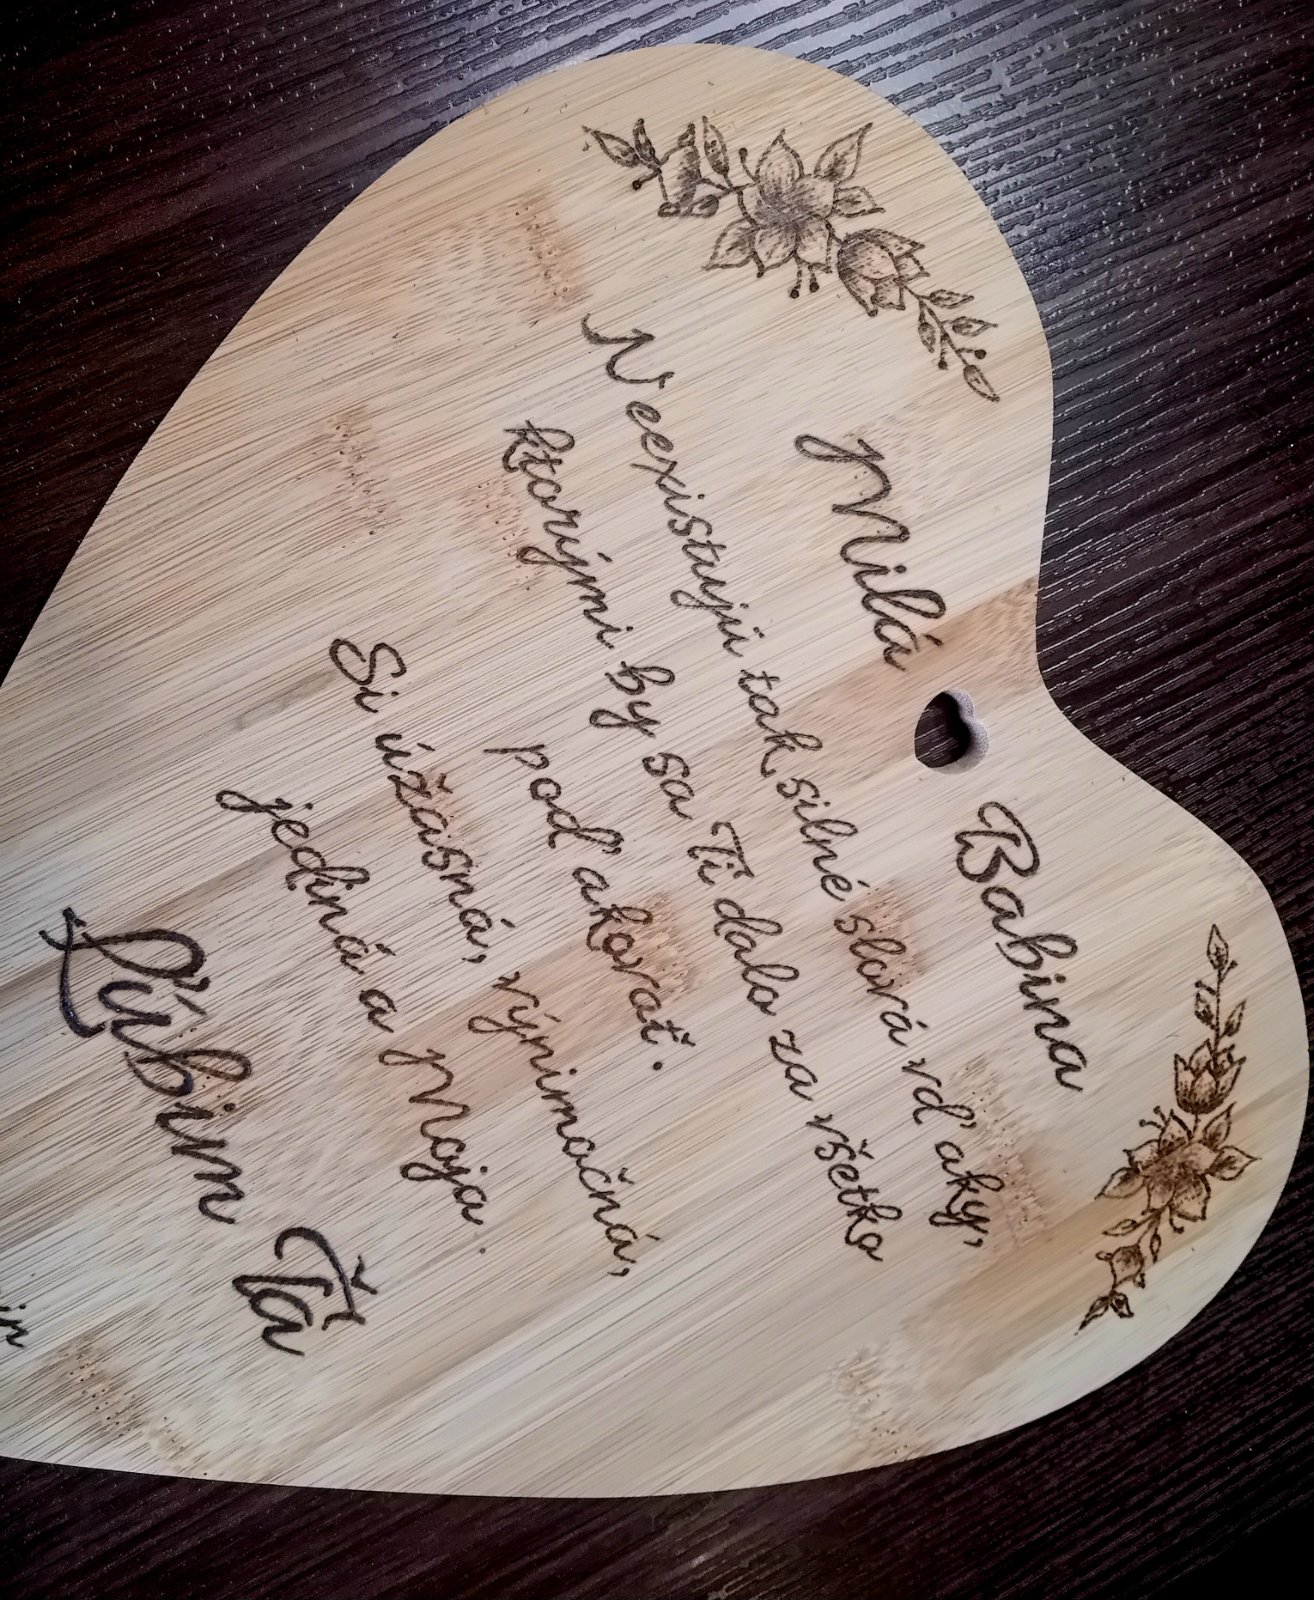 Milá Babina
Neexistujú tak silné slová vďaky,
ktorými by sa Ti dalo za všetko
poďakovať.
Si úžasná, výnimočná,
jediná a Moja.
Ľúbim Ťa